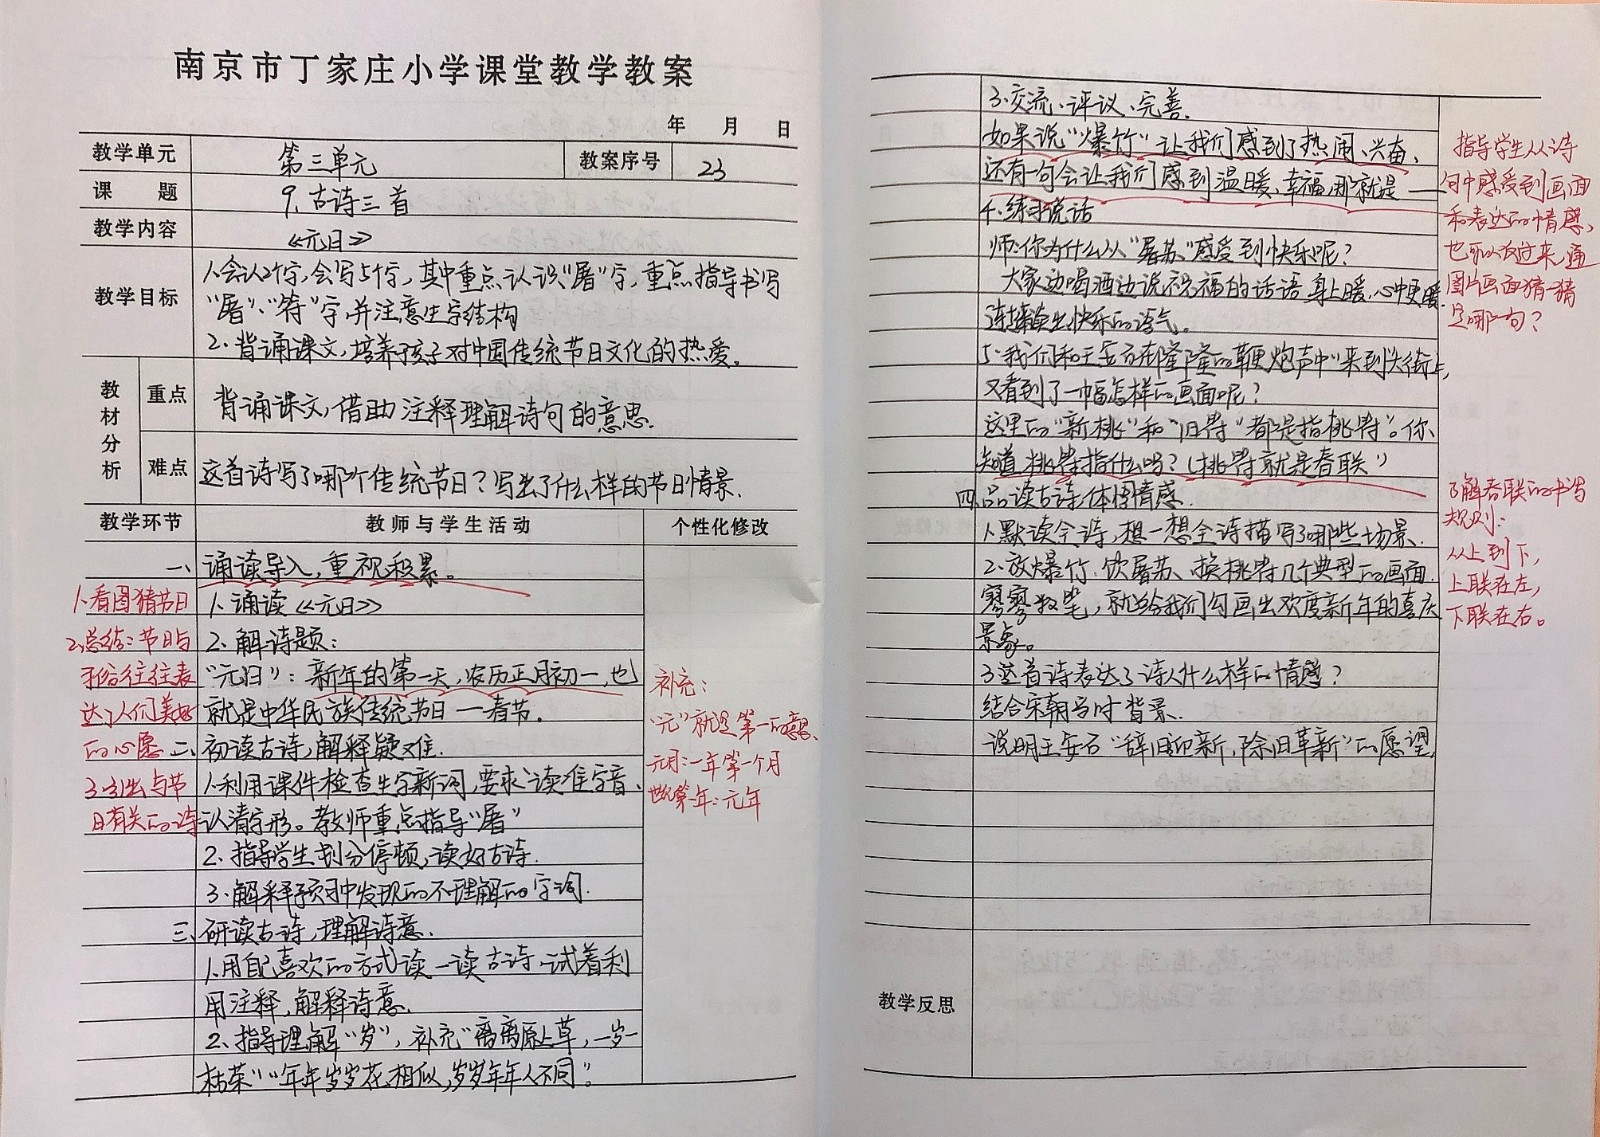 南京市丁家庄小学课堂教学教案
年 月 日
教学单元 第三单元 教案序号 23
课 题 9.古诗三首
教学内容 《元日》
教学目标
1.会认2个字,会写5个字,其中重点认识“屠”字,重点指导书写
“屠”、“符”字,并注意生字结构
2.背诵课文,培养孩子对中国传统节日文化的热爱。
教材分析
重点 背诵课文,借助注释理解诗句的意思.
难点 这首诗写了哪个传统节日?写出了什么样的节日情景.
教学环节 教师与学生活动 个性化修改
一、诵读导入,重视积累。
1.诵读《元日》
2.解诗题:
“元日”:新年的第一天,农历正月初一,也
就是中华民族传统节日—春节.
二、初读古诗,解释疑难.
1.利用课件检查生字新词,要求读准字音、
认清字形。教师重点指导“屠”
2.指导学生划分停顿,读好古诗.
3.解释预习中发现的不理解的字词.
三、研读古诗,理解诗意.
1.用自己喜欢的方式读一读古诗,试着利
用注释,解释诗意.
2.指导理解“岁”,补充“离离原上草,一岁一
枯荣”“年年岁岁花相似,岁岁年年人不同”.
1.看图猜节日
2.总结:节日与
习俗往往表
达了人们美好
的心愿
3.引出与节
日有关的诗
补充:
“元”就是第一的意思、
元月:一年第一个月
元年
3.交流、评议、完善.
如果说“爆竹”让我们感到了热闹、兴奋、
还有一句会让我们感到温暖、幸福,那就是——
4.练习说话
师:你为什么从“屠苏”感受到快乐呢?
大家边喝酒边说祝福的话语,身上暖,心中更暖.
读出快乐的语气。
5.“我们和王安石在隆隆的鞭炮声中”来到大街上,
又看到了一幅怎样的画面呢?
这里的“新桃”和“旧符”都是指桃符”。你
知道桃符指什么吗?(桃符就是春联”)
四.品读古诗,体悟情感.
1.默读全诗,想一想全诗描写了哪些场景.
2.放爆竹、饮屠苏、换桃符几个典型的画面.
寥寥数笔,就给我们勾画出欢度新年的喜庆
景象。
3.这首诗表达了诗人什么样的情感?
结合宋朝当时背景.
说明王安石“辞旧迎新,除旧革新”的愿望.
指导学生从诗
句中感受到画面
和表达的情感,
也可以反过来,通
图片画面猜一猜
是哪一句?
了解春联的书写
规则:
从上到下,
上联在左,
下联在右。
教学反思